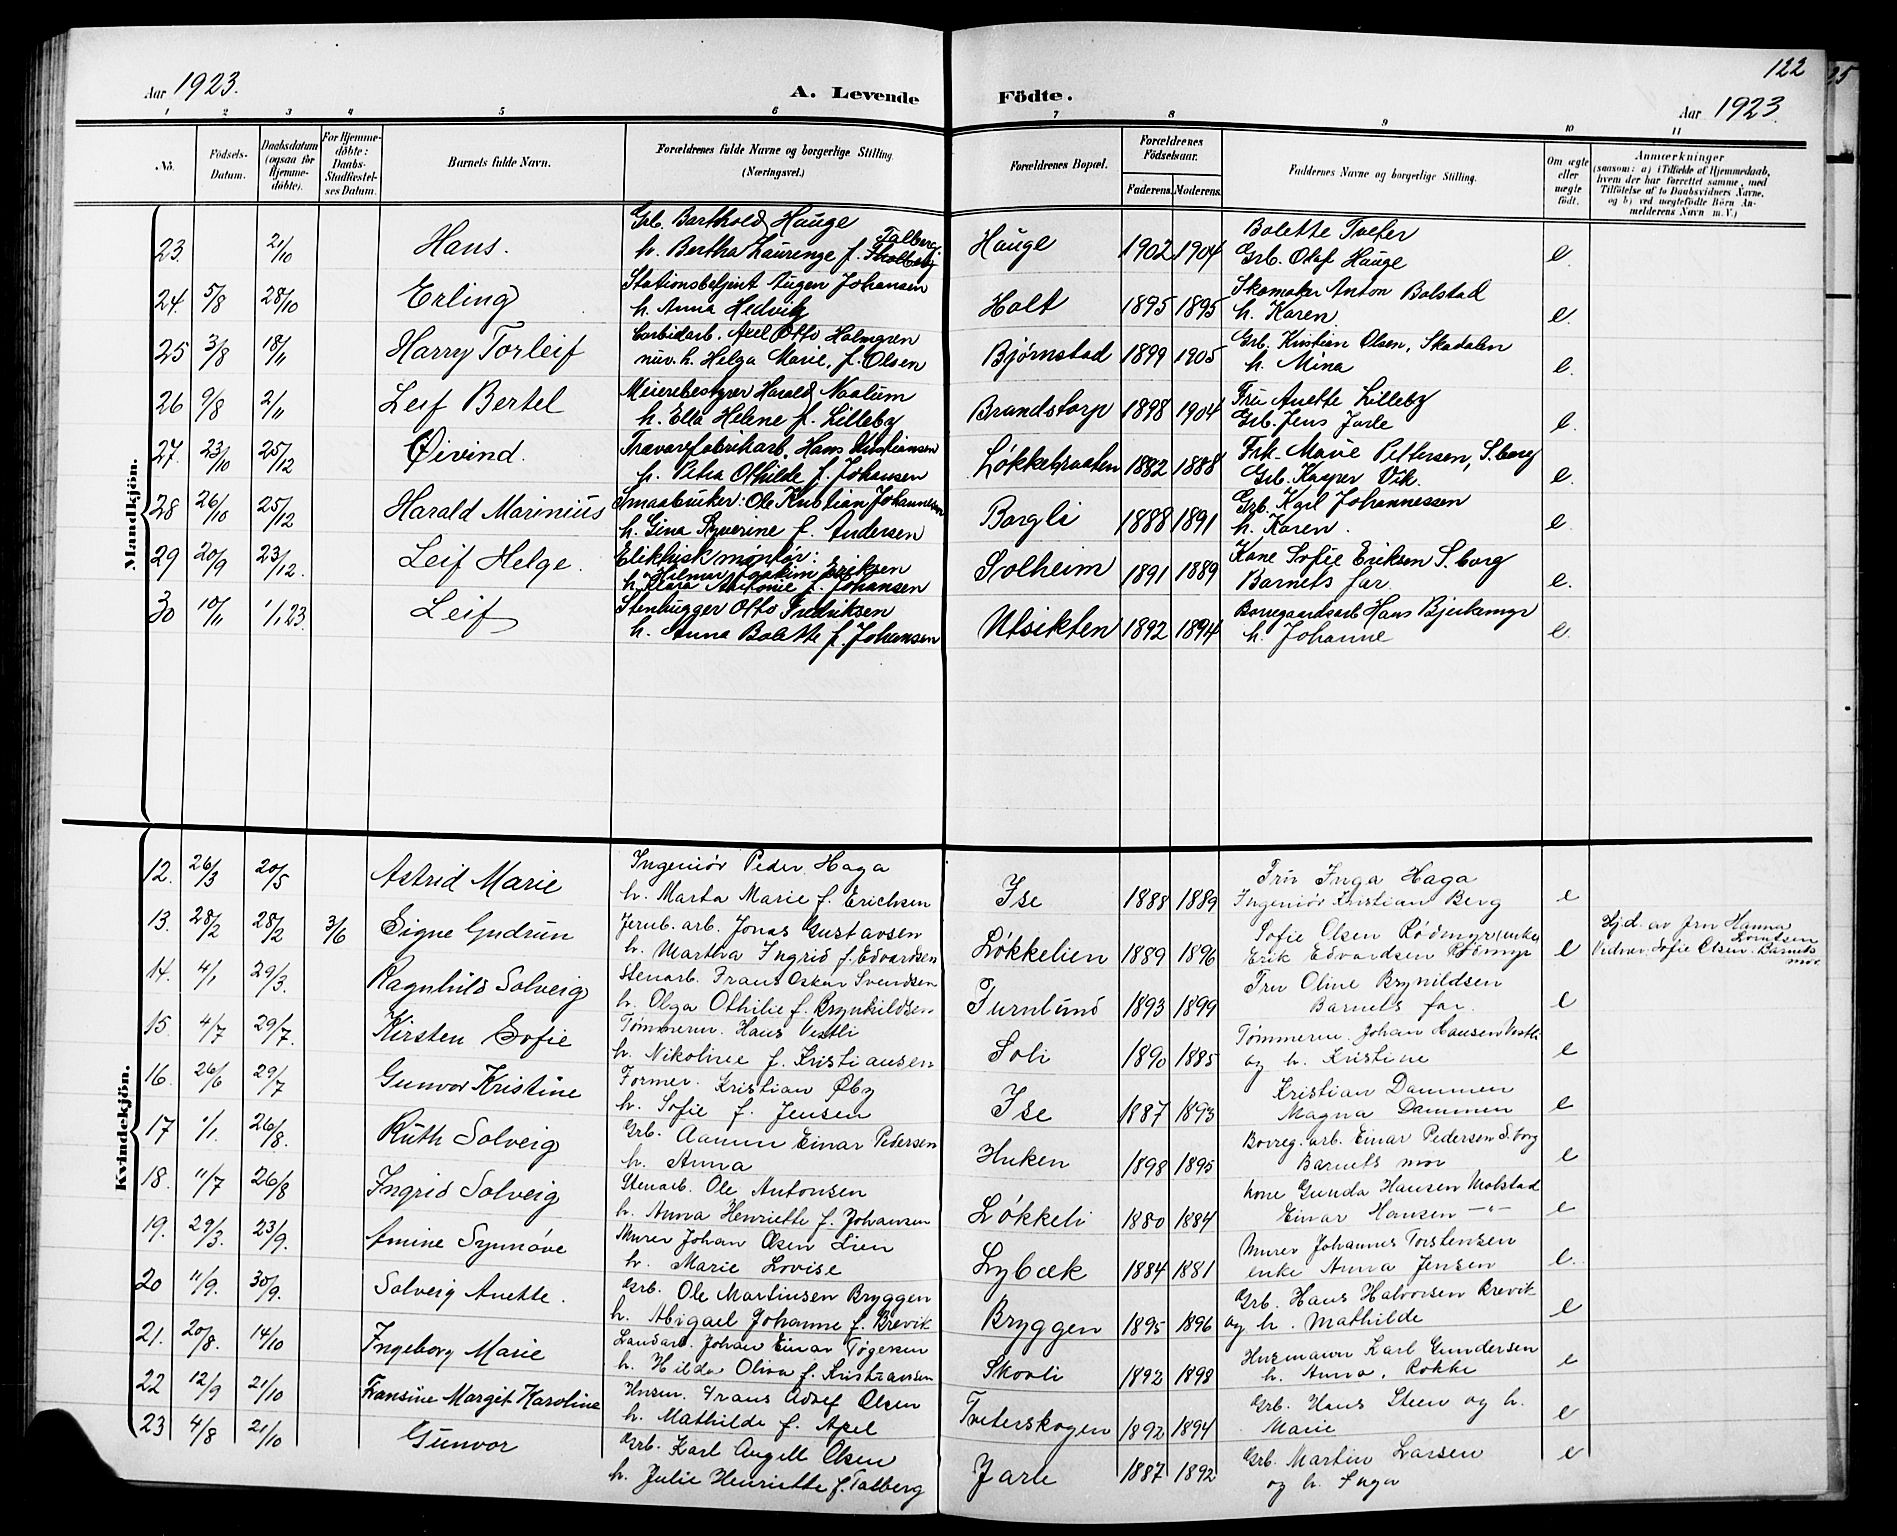 122
Aar 1923.
A. Levende Födte.
Aar 1923.
1 2 3 4 5 6 7 8 9 10 11
No.
Födsels-Datum.
Daabsdatum (ogsaa for Hjemme-döbte).
For Hjemme-döbte: Daabs-Stadfæstel-ses Datum.
Barnets fulde Navn.
Forældrenes fulde Navne og borgerlige Stilling. (Næringsvei.)
Forældrenes Bopæl.
Forældrenes Födselsaar.
Faderens. Moderens.
Faddernes Navne og borgerlige Stilling.
Om ægte eller uægte födt.
Anmærkninger
(saasom: a) i Tilfælde af Hjemmedaab, hvem der har forrettet samme, med Tilföielse af to Daabsvidners Navne, og b) ved uægtefödte Börn An-melderens Navn m. V.)
Mandkjön.
23. 21/10 Hans. Grb. Barthold Hauge Hauge 1902 1904 Bolette Tveter e.
h. Bertha Laurenze f. Talberg Grb. Olaf Hauge
24. 5/8 28/10 Erling Stationsbetjent Augen Johansen Holt 1895 1895 Skomaker Anton Bolstad e.
h. Anna Hedvik h. Karen
25 3/8 18/11 Harry Torleif Carbidarb. Axel Otto Holmgren Bjørnstad 1899 1905 Grb. Kristian Olsen, Skadalen e.
nuv. h. Helga Marie, f. Olsen h. Mina
26 9/8 2/11 Leif Bertel Meieribestyrer Harald Naalum Brandstorp 1898 1904 Fru Anette Lilleby e.
h. Ella Helene f. Lilleby Grb. Jens Jarle
27. 23/10 25/12 Øivind. Trævarefabrikarb. Hans Kristiansen Løkkebraaten 1882 1888 Frk. Marie Pettersen, S.borg e.
h. Petra Othilde f. Johansen Grb. Kasper Vik.
28 26/10 25/12 Harald Marinius Smaabruker: Ole Kristian Johannesen Borgli 1888 1891 Grb. Karl Johannessen e.
h. Gina Syverine f. Andersen h. Karen.
29 20/9 23/12. Leif Helge. Elektrisk montør: Solheim 1891 1889 Kone Sofie Eriksen S.borg e.
Hilmar Joakim Eriksen
h. Klara Antonie f. Johansen Barnets far.
30 10/11 1/1 23. Leif Stenhugger Otto Fredriksen Utsikten 1892 1894 Borregaardsarb Hans Bjerkemyr e.
h. Anna Bolette f. Johansen h. Johanne
Kvindekjön.
12. 26/3 20/5 Astrid Marie Ingeniör Peder Haga Ise 1888 1889 Fru Inga Haga e
h. Marta Marie f. Erichsen Ingeniör Kristian Berg
13. 28/2 28/2 3/6 Signe Gudrun Jernb. arb. Jonas Gustavsen Løkkelien 1889 1896 Sofie Olsen Rødmyr, enke e Hj.d. av Jrn Hanna
h. Martha Ingrid f. Edvardsen Erik Edvardsen Rødmyr Vidner: Sofie Olsen, Barnets mor
14. 4/1 29/3. Ragnhild Solveig Stenarb. Frans Oskar Svendsen Furulund 1893 1899 Fru Oline Brynildsen e
h. Olga Othilie f. Brynhildsen Barnets far.
15. 4/7 29/7. Kirsten Sofie Tømmerm. Hans Vestli Soli 1890 1885 Tømmerm. Johan Hansen Vestli e
h. Nikoline f. Kristiansen og h. Kristine
16. 26/6 29/7 Gunvor Kristine Former. Kristian Øby Ise 1887 1893 Kristian Dammen e
h. Sofie f. Jensen Magna Dammen
17 1/1. 26/8. Ruth Solveig Grb. Aamun Einar Pedersen Huken 1898 1895 Borreg. arb. Einar Pedersen S.borg e
h. Anna Barnets mor
18. 11/7 26/8 Ingrid Solveig Stenarb. Ole Antonsen Løkkeli 1880 1884 kone Gunda Hansen Molstad e
h. Anna Henriette f. Johansen Einar Hansen —"—
19. 29/3. 23/9. Amine Synnöve Murer Johan Olsen Lien Lybæk 1884 1881 Murer Johannes Torstensen e.
h. Marie Lovise enke Anna Jensen
20 11/9. 30/9. Solveig Anette. Grb. Ole Martinsen Bryggen Bryggen 1895 1896 Grb. Hans Halvorsen Brevik e
h. Abigael Johanne f. Brevik og h. Mathilde
21. 20/8. 14/10 Ingeborg Marie Landarb. Johan Einar Tøgersen Skovli 1892 1898 Husmann Karl Gundersen e
h. Hilda Oliva f. Kristiansen h. Anna, Rokke
22 12/9 21/10 Fransine Margit Karoline Husm. Frans Adolf Olsen Tveterskogen 1892 1894 Grb. Hans Steen og h. e
h. Mathilde f. Axel Marie
23 4/8 21/10 Gunvor Grb. Karl Angell Olsen Jarle 1887 1892 Grb. Martin Larsen e
h. Julie Henriette f. Talberg og h. Inga